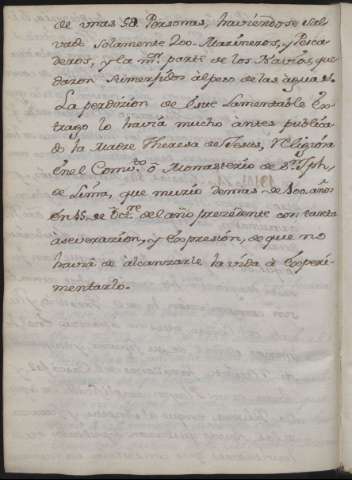 de unas 5@ Personas, haviendose sal
vado solamente 200. Marineros, y Pesca
dores, y la mr. parte de los Navios, que
daron sumergidos al peso de las aguas.
La perdizion de este Lamentable Es-
trago lo havia mucho antes publica
do la Madre Theresa de Jesus, Religiosa
en el Comv.to ô Monasterio de S.n Jph,
de Lima, que murio demas de 100 años
en 15. de Oct.re del año prezedente con tanta
aseverazion, y Expresion, de que no
havia de alcanzarle la vida â Experi-
mentarlo.